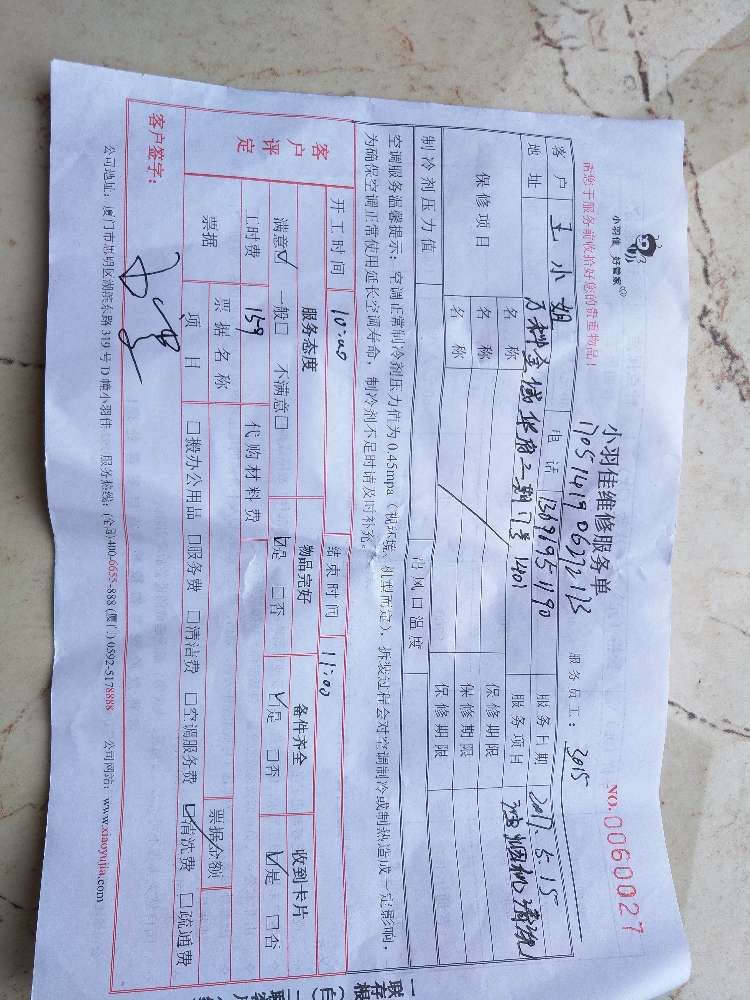 小羽佳 好管家®
小羽佳维修服务单
NO. 0060027
请您于服务前收拾好您的贵重物品!
服务员工: 3015
客户 王小姐 电话 服务日期 2017.5.15
地址 万科金域华府二期 1401 服务项目 油烟机清洗
保修项目 名称 保修期限
名称 保修期限
名称 保修期限
制冷剂压力值 出风口温度
空调服务温馨提示: 空调正常制冷剂压力值为0.45mpa(视环境、机型而定), 拆装过程会对空调制冷或制热造成一定影响,
为确保空调正常使用延长空调寿命, 制冷剂不足时请及时补充。
开工时间 10:00 结束时间 11:00
客户评定 服务态度 物品完好 备件齐全 收到卡片
满意☑ 一般□ 不满意□ ☑是 □否 ☑是 □否 ☑是 □否
工时费 159 代购材料费
票据 票据名称 票据金额
项目 □搬办公用品 □服务费 □清洁费 □空调服务费 ☑清洗费 □疏通费
客户签字:
公司地址: 厦门市思明区湖滨东路319号D幢小羽佳 服务热线: (全国)400-6655-888 (厦门)0592-5178888 公司网站: www.xiaoyujia.com